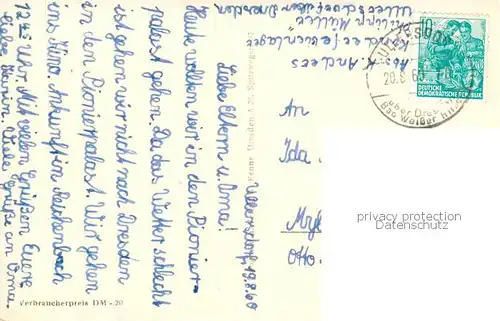 Abs. K. Anders
Kinderferienlager
Philipp Müller
Ullersdorf über Dresden
Ullersdorf, 19.8.60
Liebe Eltern u. Oma!
Heute wollten wir in den Pionier-
palast gehen. Da das Wetter schlecht
ist gehen wir nicht nach Dresden
in den Pionierpalast. Wir gehen
ins Kino. Ankunft in Reichenbach
12 25 Uhr. Mit vielen Grüßen Eure
liebe Karin. Viele Grüße an Oma.
Verbraucherpreis DM -.20
An
Ida
Myl
Otto-
10
DEUTSCHE
DEMOKRATISCHE REPUBLIK
ULLERSDORF
20.8.60
über Dres
Bad Weißer Hirsch
privacy protection
Datenschutz